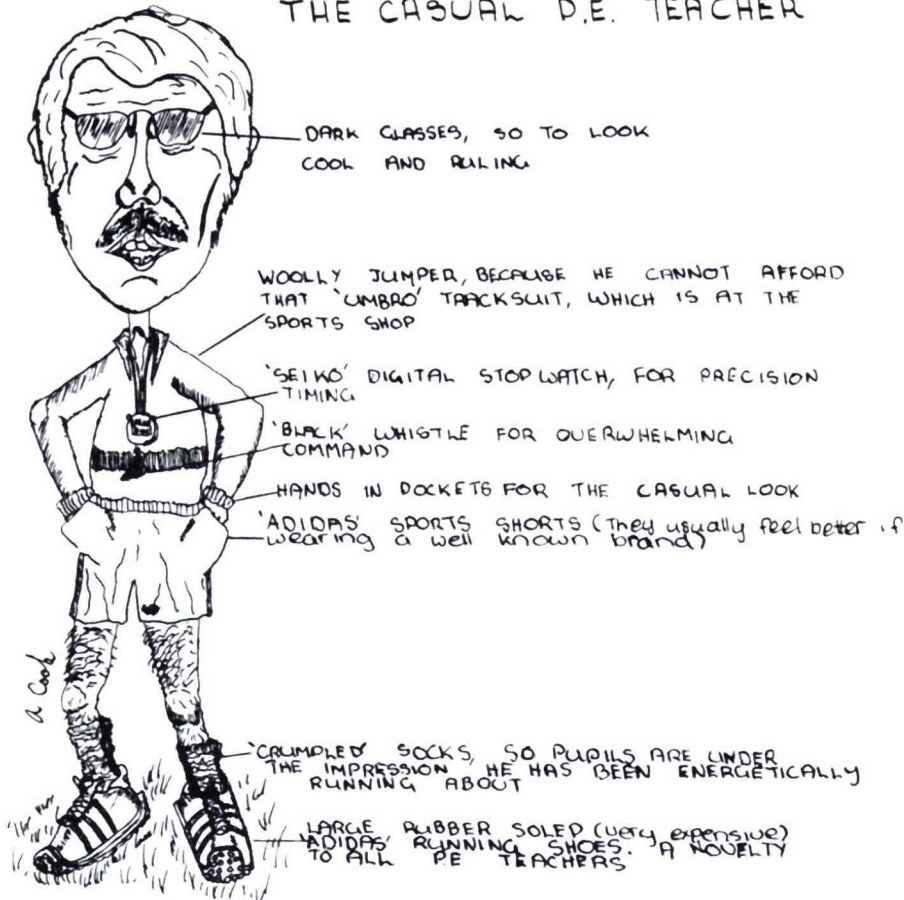 THE CASUAL P.E. TEACHER
DARK GLASSES, SO TO LOOK
COOL AND RULING
WOOLLY JUMPER, BECAUSE HE CANNOT AFFORD
THAT 'UMBRO' TRACKSUIT, WHICH IS AT THE
SPORTS SHOP
'SEIKO' DIGITAL STOPWATCH, FOR PRECISION
TIMING
'BLACK' WHISTLE FOR OVERWHELMING
COMMAND
HANDS IN POCKETS FOR THE CASUAL LOOK
'ADIDAS' SPORTS SHORTS (They usually feel better if
wearing a well known brand)
a Cook
'CRUMPLED' SOCKS, SO PUPILS ARE UNDER
THE IMPRESSION HE HAS BEEN ENERGETICALLY
RUNNING ABOUT
LARGE RUBBER SOLED (very expensive)
'ADIDAS' RUNNING SHOES. A NOVELTY
TO ALL P.E TEACHERS